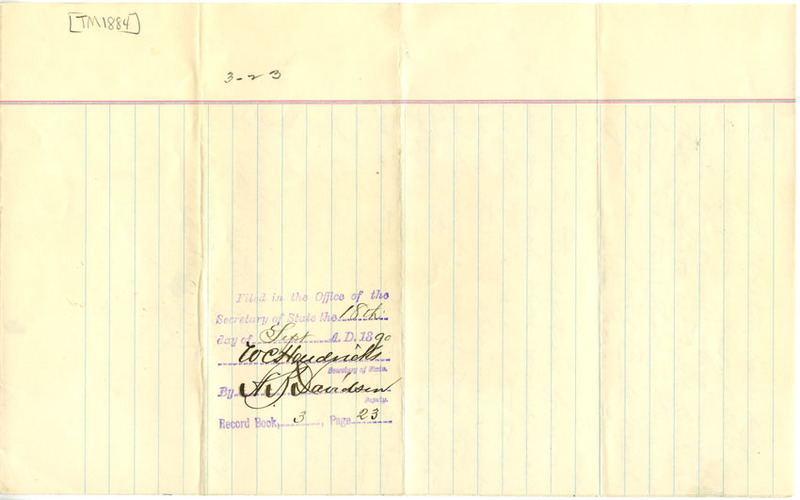 [TM1884]
3-23
Filed in the Office of the
Secretary of State the 18th
day of Sept A.D. 1890
W C Hendricks
Secretary of State.
By A. J. Davidson
Deputy.
Record Book, 3, Page 23